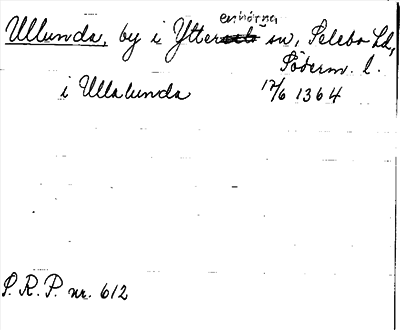 Ullunda, by i Ytterenhörna sn, Selebo hd,
Söderm. l.
i Ullalunda 17/6 1364
S.R.P. nr. 612